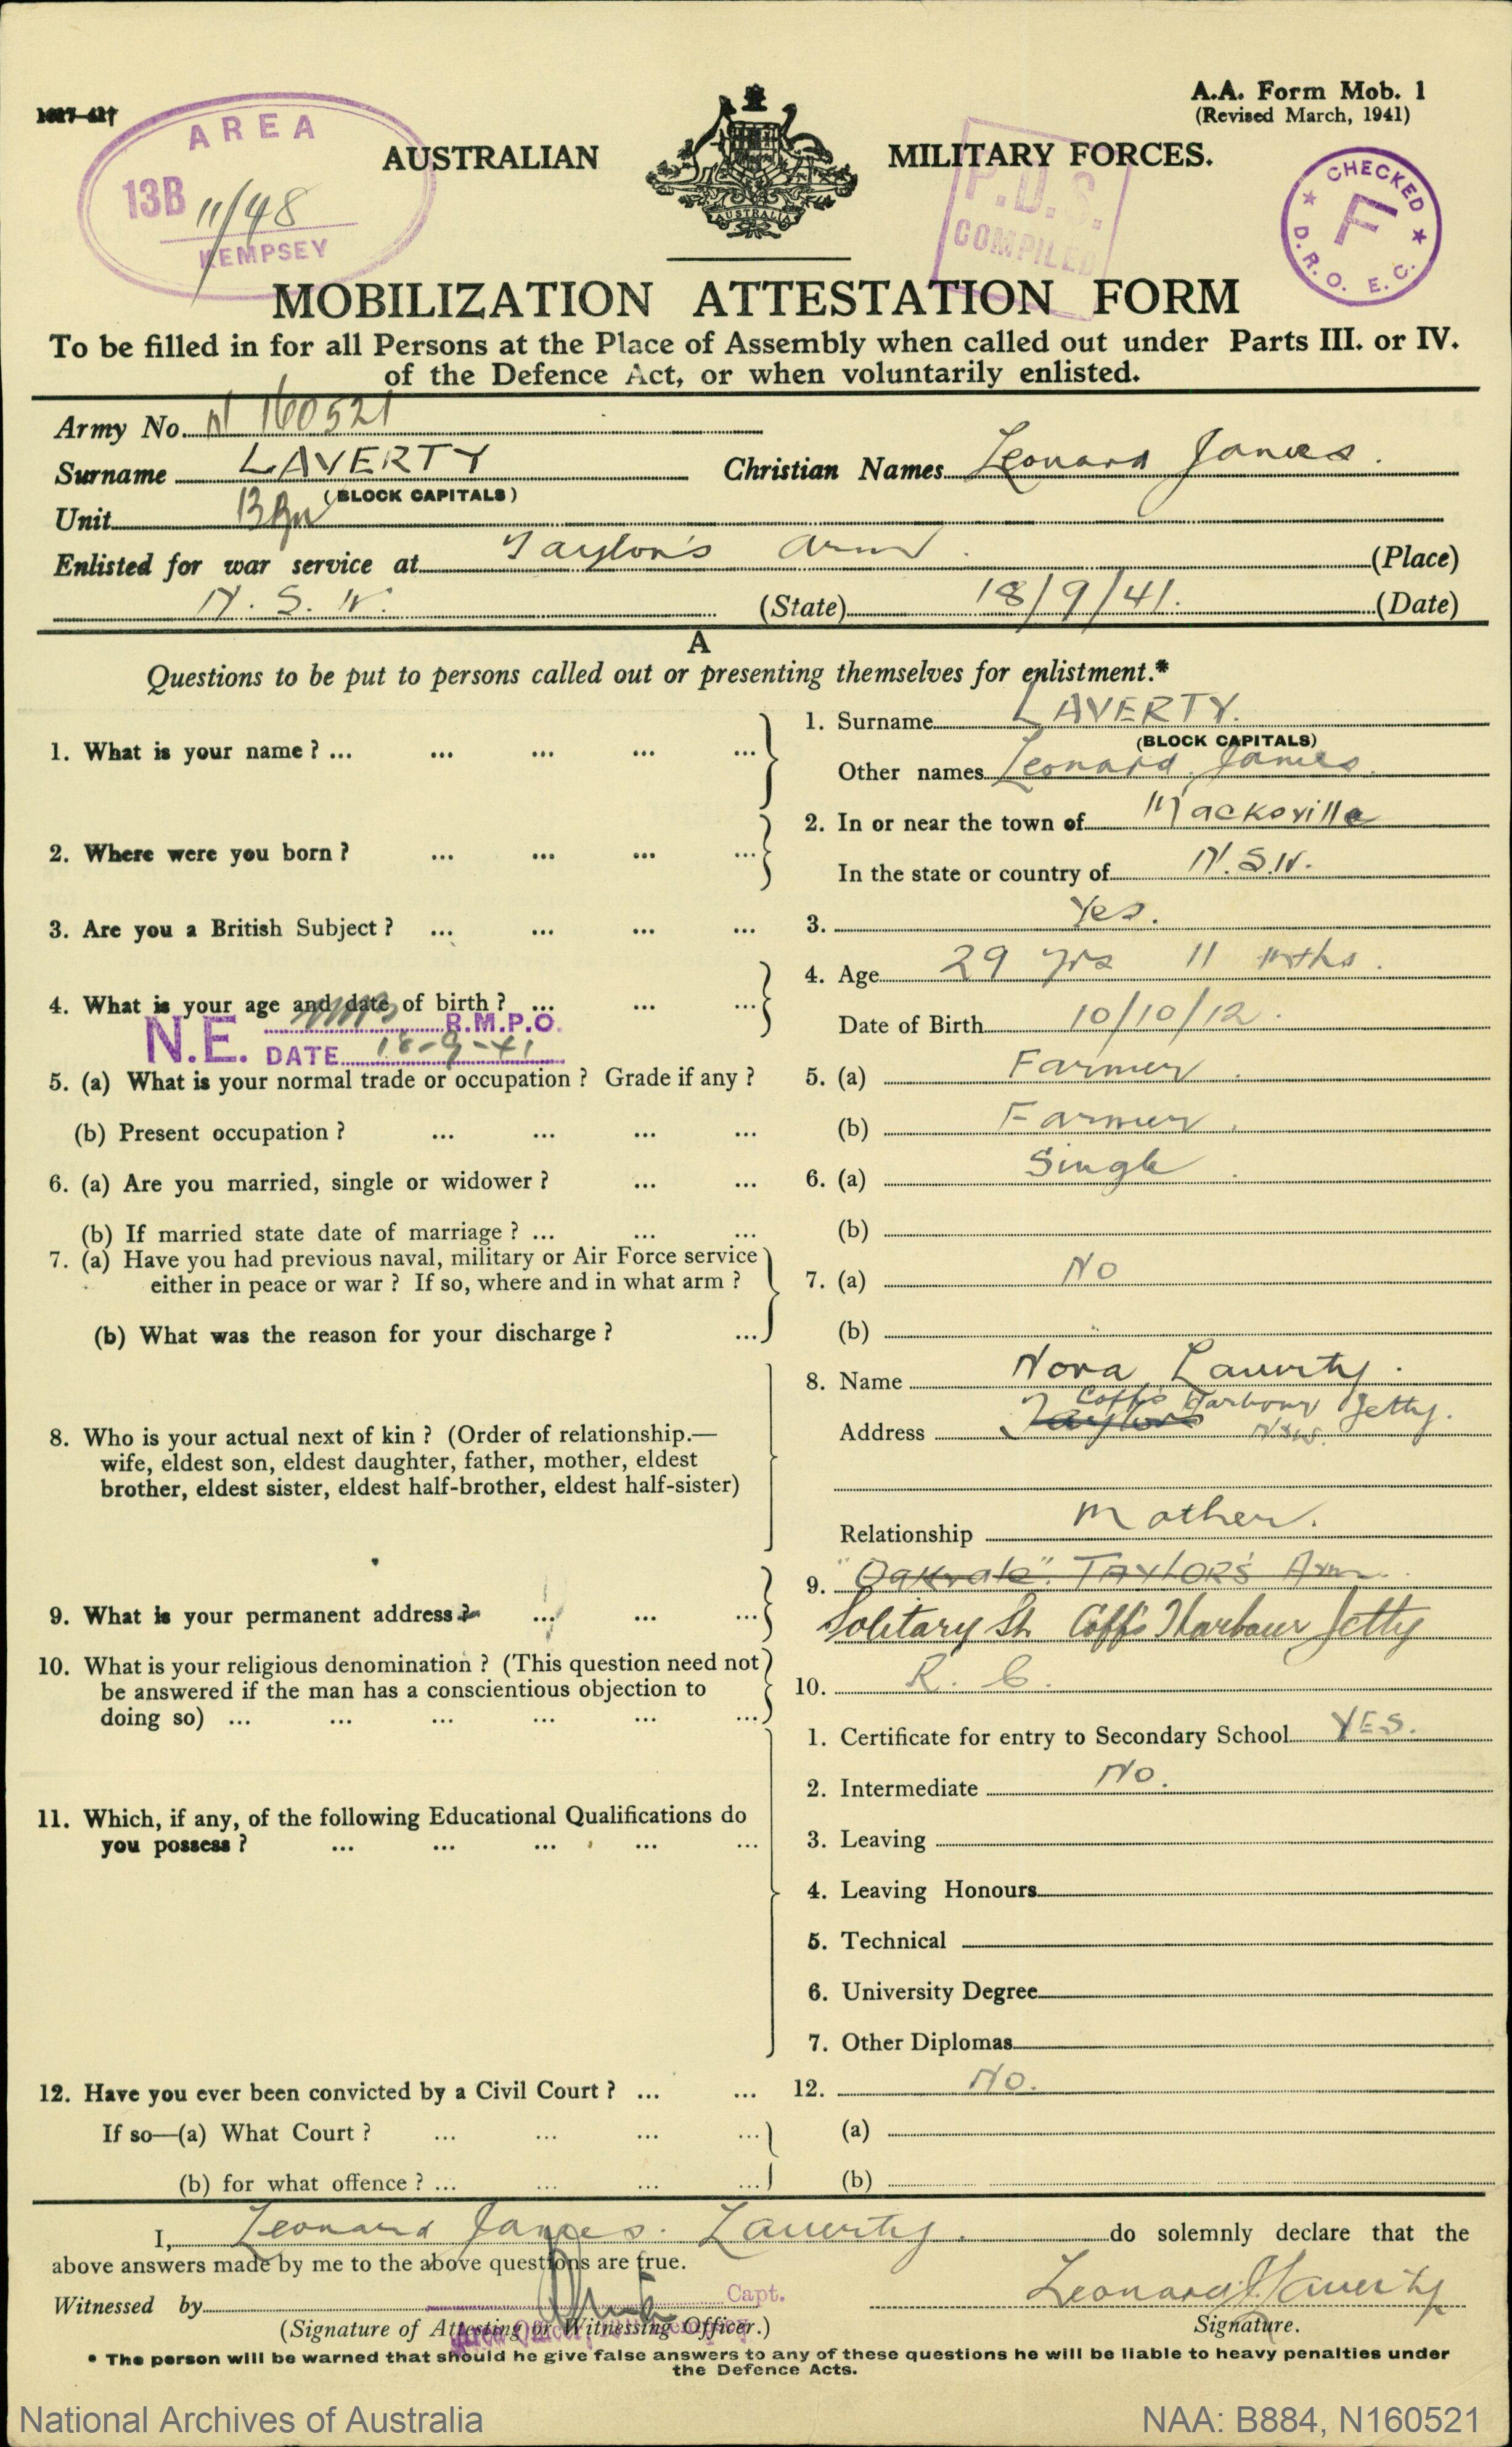 1027-41†
A.A. Form Mob. 1
(Revised March, 1941)
AREA
13B 11/48
KEMPSEY
AUSTRALIAN MILITARY FORCES.
AUSTRALIA
P.D.S.
COMPILED
CHECKED
F
D.R.O. E.C.
MOBILIZATION ATTESTATION FORM
To be filled in for all Persons at the Place of Assembly when called out under Parts III. or IV.
of the Defence Act, or when voluntarily enlisted.
Army No. N 160521
Surname LAVERTY Christian Names Leonard James.
(BLOCK CAPITALS)
Unit 13 Bn
Enlisted for war service at Taylor's Arm. (Place)
N.S.W. (State) 18/9/41. (Date)
A
Questions to be put to persons called out or presenting themselves for enlistment.*
1. What is your name? ... ... ... ... ... 1. Surname LAVERTY.
(BLOCK CAPITALS)
Other names Leonard James.
2. Where were you born? ... ... ... ... 2. In or near the town of Macksville
In the state or country of N.S.W.
3. Are you a British Subject? ... ... ... ... 3. Yes.
4. What is your age and date of birth? ... ... ... 4. Age 29 yrs 11 mths.
Date of Birth 10/10/12.
N.E. R.M.P.O.
DATE 18-9-41
5. (a) What is your normal trade or occupation? Grade if any? 5. (a) Farmer.
(b) Present occupation? ... ... ... ... (b) Farmer.
6. (a) Are you married, single or widower? ... ... 6. (a) Single.
(b) If married state date of marriage? ... ... ... (b)
7. (a) Have you had previous naval, military or Air Force service
either in peace or war? If so, where and in what arm? 7. (a) No
(b) What was the reason for your discharge? ... (b)
8. Who is your actual next of kin? (Order of relationship.—
wife, eldest son, eldest daughter, father, mother, eldest
brother, eldest sister, eldest half-brother, eldest half-sister)
8. Name Nora Laverty.
Coff's Harbour Jetty.
Address Taylors N.S.W.
Relationship Mother.
9. What is your permanent address? ... ... ... 9. "Oakvale". TAYLOR'S Arm.
Solitary St. Coff's Harbour Jetty
10. What is your religious denomination? (This question need not
be answered if the man has a conscientious objection to
doing so) ... ... ... ... ... ... 10. R. C.
11. Which, if any, of the following Educational Qualifications do
you possess? ... ... ... ... ...
1. Certificate for entry to Secondary School YES.
2. Intermediate No.
3. Leaving
4. Leaving Honours
5. Technical
6. University Degree
7. Other Diplomas
12. Have you ever been convicted by a Civil Court? ... ... 12. No.
If so—(a) What Court? ... ... ... ... (a)
(b) for what offence? ... ... ... ... (b)
I, Leonard James. Laverty. do solemnly declare that the
above answers made by me to the above questions are true.
Witnessed by Capt. Leonard J Laverty
(Signature of Attesting or Witnessing Officer.) Signature.
* The person will be warned that should he give false answers to any of these questions he will be liable to heavy penalties under
the Defence Acts.
National Archives of Australia NAA: B884, N160521